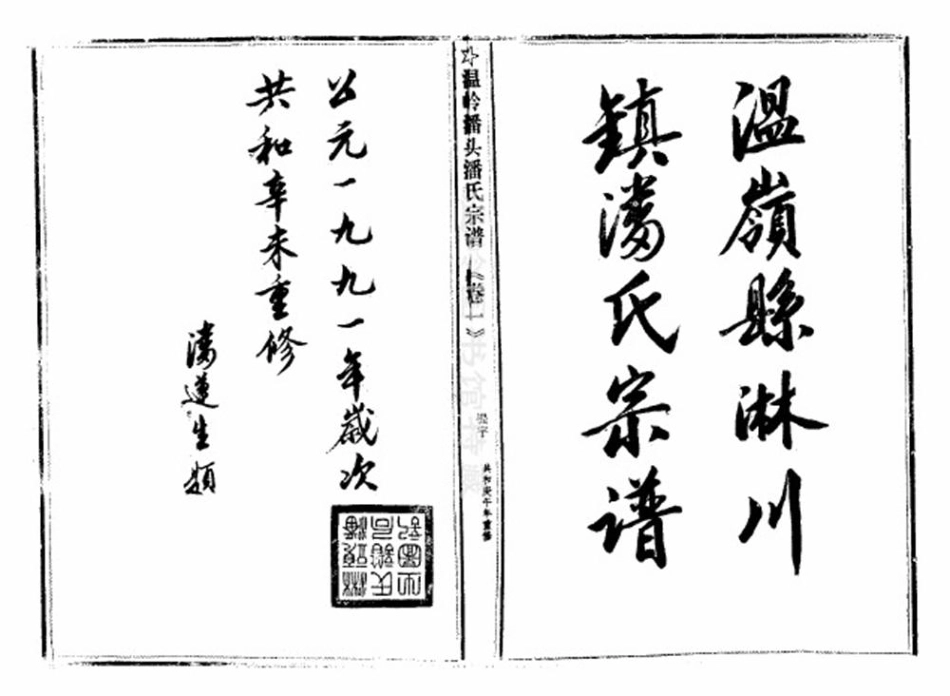 溫嶺縣淋川
鎮潘氏宗谱
☆温岭播头潘氏宗谱《卷一》
共和庚午年重修
公元一九九一年歲次
共和辛未重修
潘 生題
书馆特